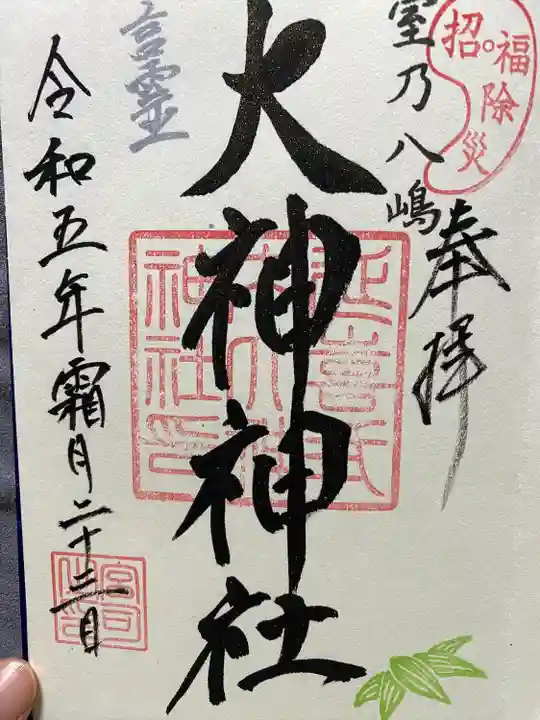 招福
除災
奉拝
室乃八嶋
大神神社
言霊
令和五年霜月二十三日
宮司